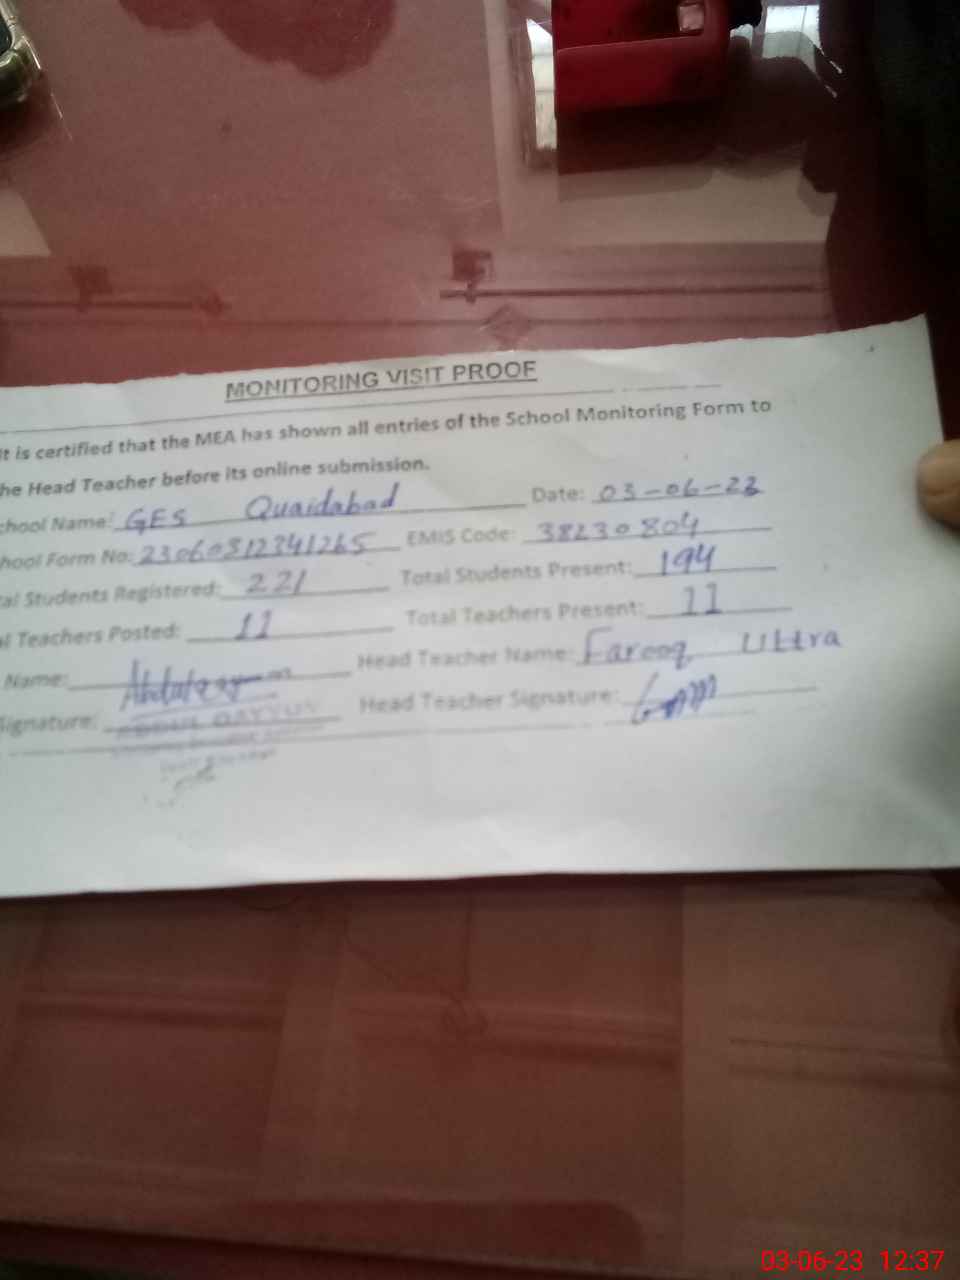 MONITORING VISIT PROOF
It is certified that the MEA has shown all entries of the School Monitoring Form to
he Head Teacher before its online submission.
chool Name: GES Quaidabad Date: 03-06-23
hool Form No: 23060312341265 EMIS Code: 38230804
al Students Registered: 221 Total Students Present: 194
l Teachers Posted: 11 Total Teachers Present: 11
Name: Head Teacher Name: Farooq Ultra
ignature: Head Teacher Signature:
ABDUL QAYYUM
03-06-23 12:37